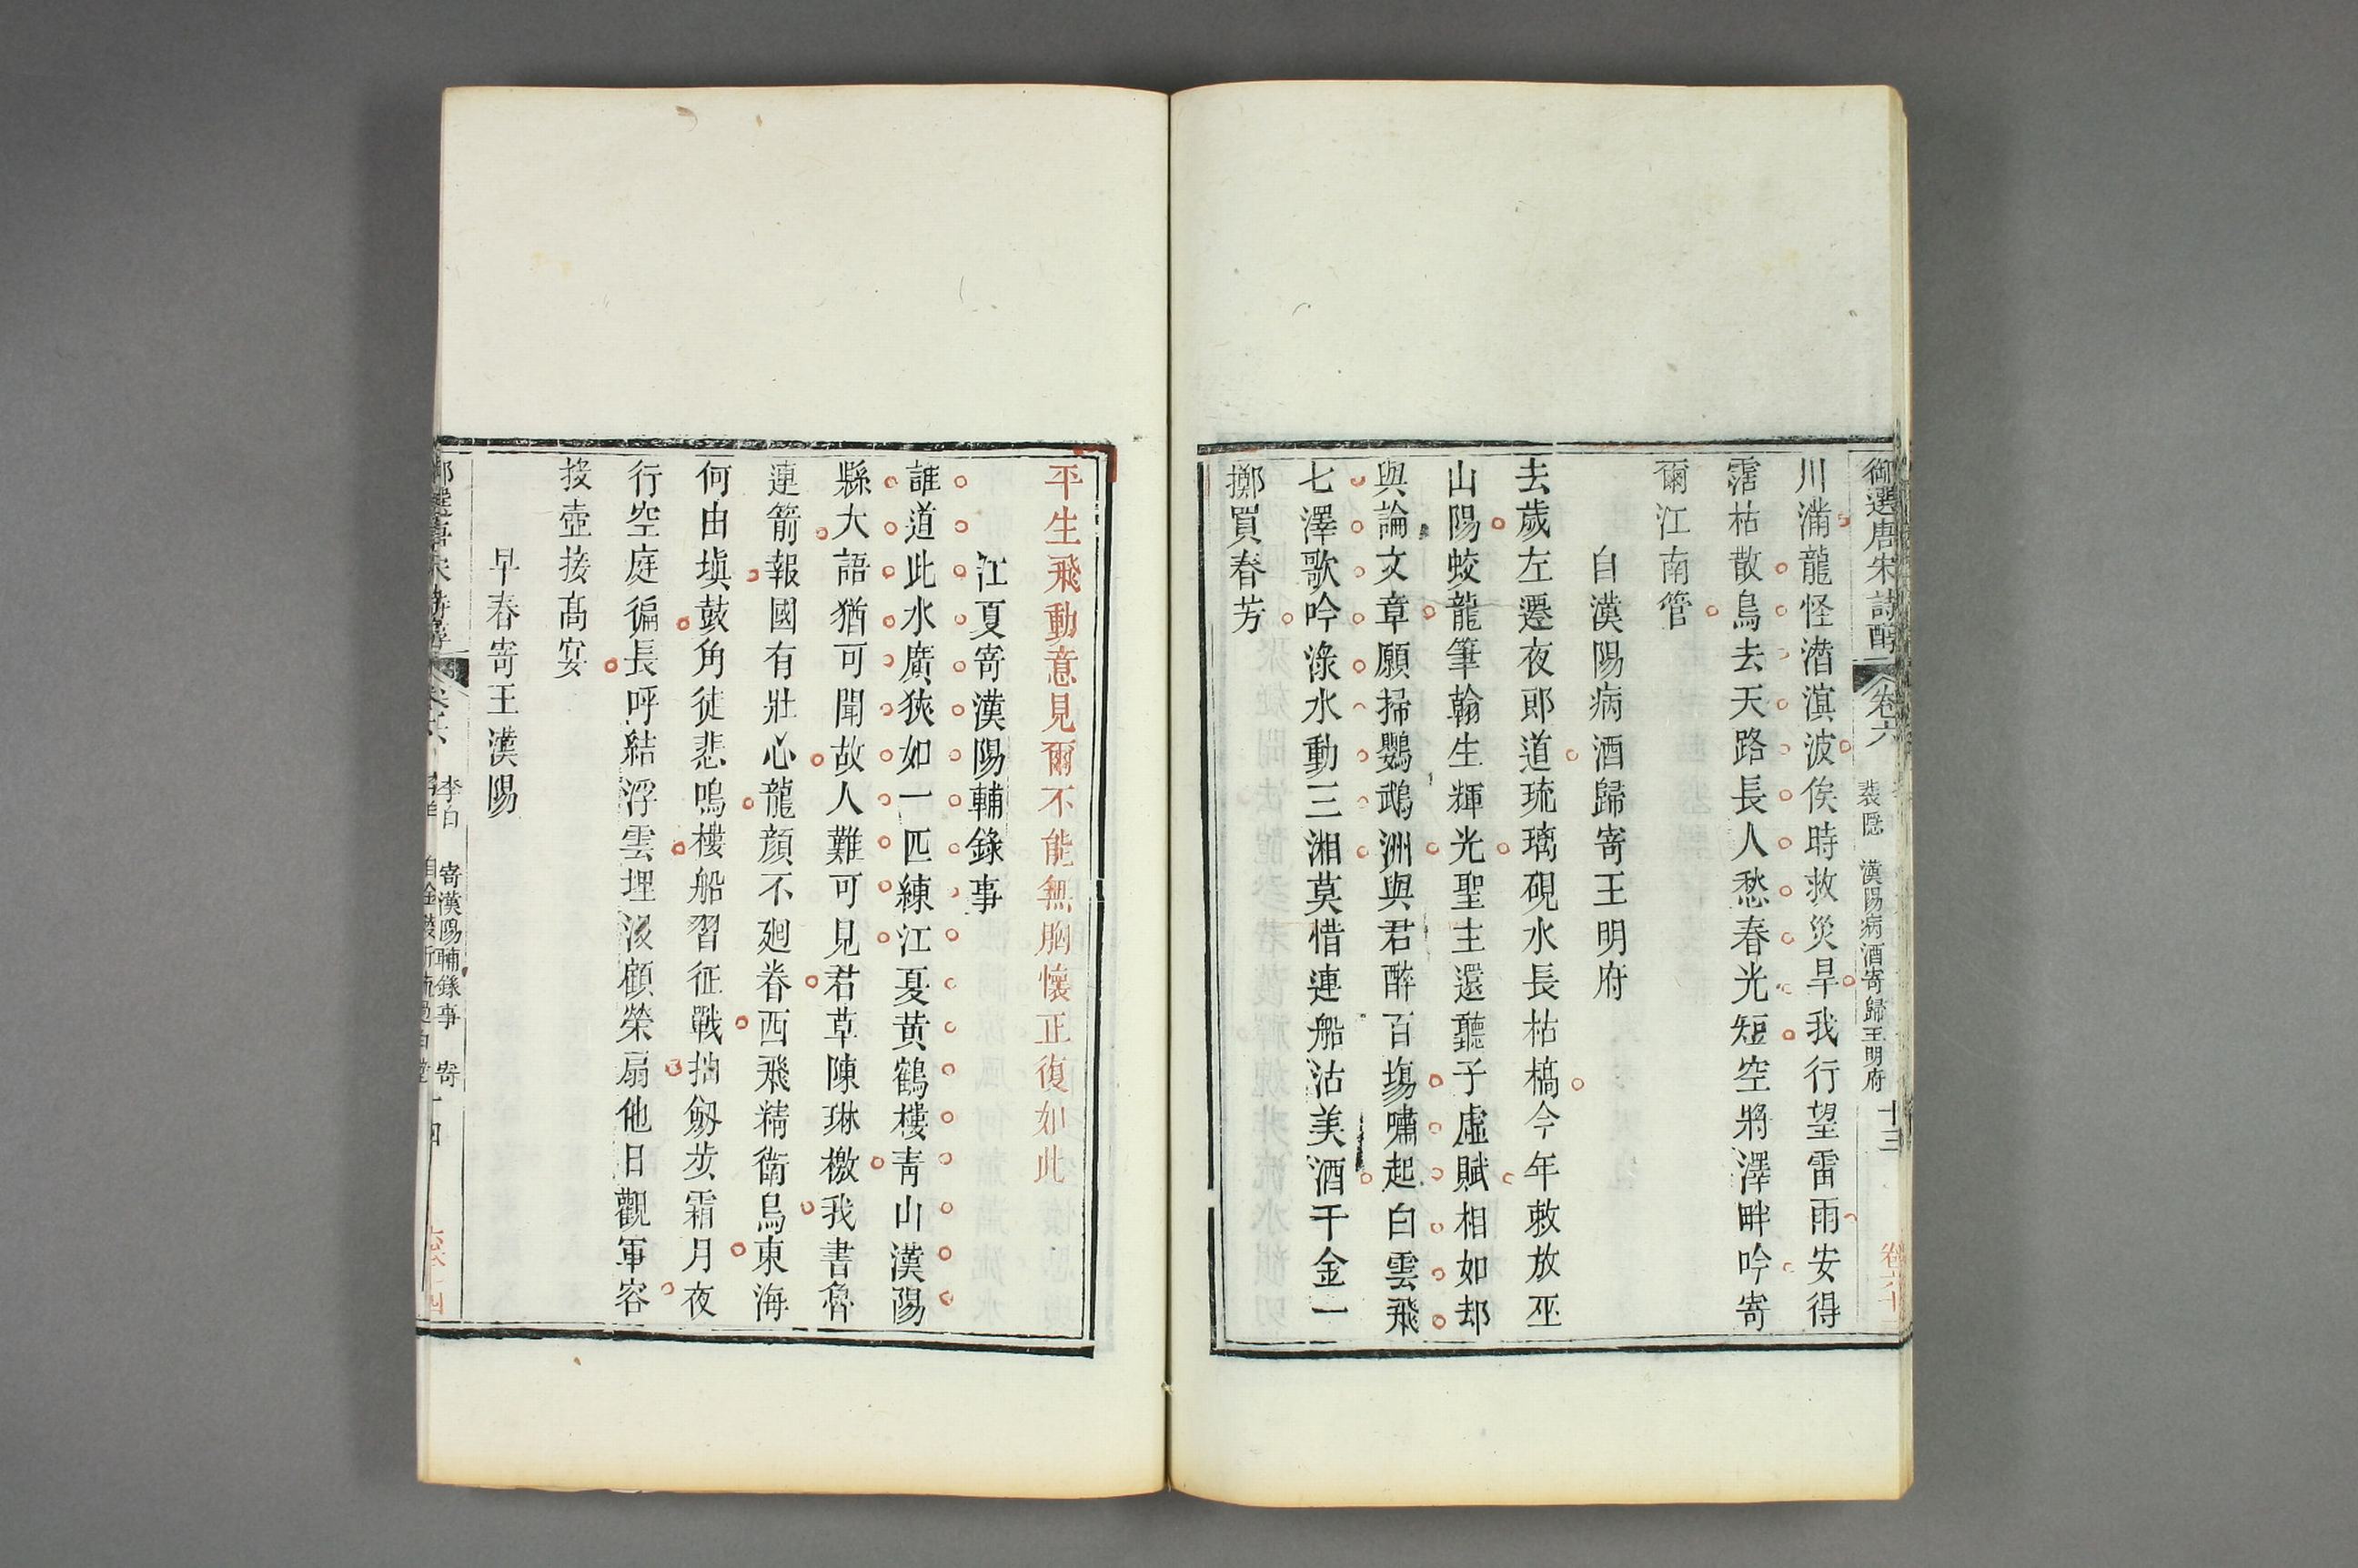 御選唐宋詩醇
卷六
裴隱　漢陽病酒寄歸王明府
十三
川滿龍怪潛滇波俟時救災旱我行望雷雨安得
霑枯散鳥去天路長人愁春光短空將澤畔吟寄
爾江南管
自漢陽病酒歸寄王明府
去歲左遷夜郎道琉璃硯水長枯槁今年敕放巫
山陽蛟龍筆翰生輝光聖主還聽子虛賦相如却
與論文章願掃鸚鵡洲與君醉百塲嘯起白雲飛
七澤歌吟淥水動三湘莫惜連船沽美酒千金一
擲買春芳
平生飛動意見爾不能無胸懷正復如此
江夏寄漢陽輔錄事
誰道此水廣狹如一匹練江夏黃鶴樓青山漢陽
縣大語猶可聞故人難可見君草陳琳檄我書魯
連箭報國有壯心龍顏不廻眷西飛精衛鳥東海
何由塡鼓角徒悲鳴樓船習征戰抽劔步霜月夜
行空庭徧長呼結浮雲埋没顧榮扇他日觀軍容
投壺接高宴
早春寄王漢陽
李白　寄漢陽輔錄事　寄